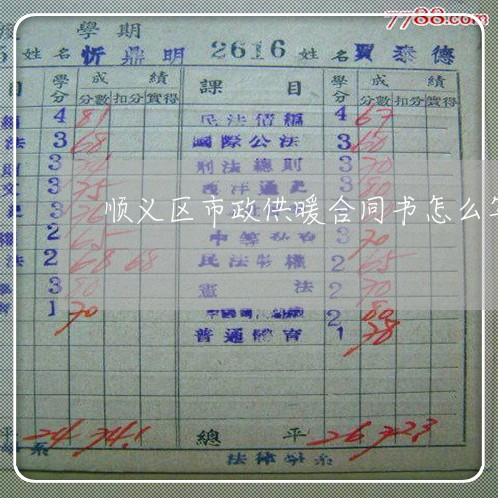 7788.com
學期
姓名 忻鼎明 2616 姓名 賈泰德
目 學分 成績 課目 學分 成績
分數 扣分 實得 分數 扣分 實得
4 81 民法債編 4 67
法 3 68 國際公法 3 60
3 刑法總則 3 70
3 75 西洋通史 3 80
3
顺义区市政供暖合同书怎么
2 65 3 70
法 2 68 68 民法物權 2 65
3 80 憲法 2 70
1 70 2 80
普通體育 1 78
平 24 74.1 總平 26 72.3
系 法律學系